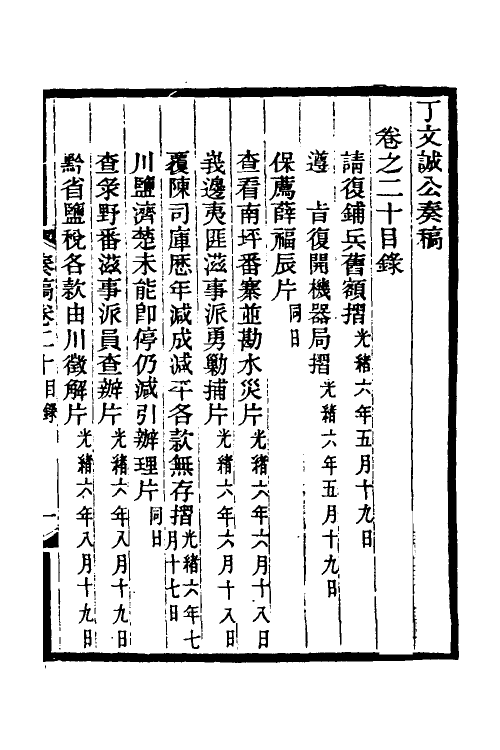 丁文誠公奏稿
卷之二十目錄
請復鋪兵舊額摺光緒六年五月十九日
遵 旨復開機器局摺光緒六年五月十九日
保薦薛福辰片同日
查看南坪番寨並勘水災片光緒六年六月十八日
峩邊夷匪滋事派勇勦捕片光緒六年六月十八日
覆陳司庫歷年減成減平各款無存摺光緒六年七月十七日
川鹽濟楚未能卽停仍減引辦理片同日
查彔野番滋事派員查辦片光緒六年八月十九日
黔省鹽稅各款由川徵解片光緒六年八月十九日
奏稿卷二十目錄 一